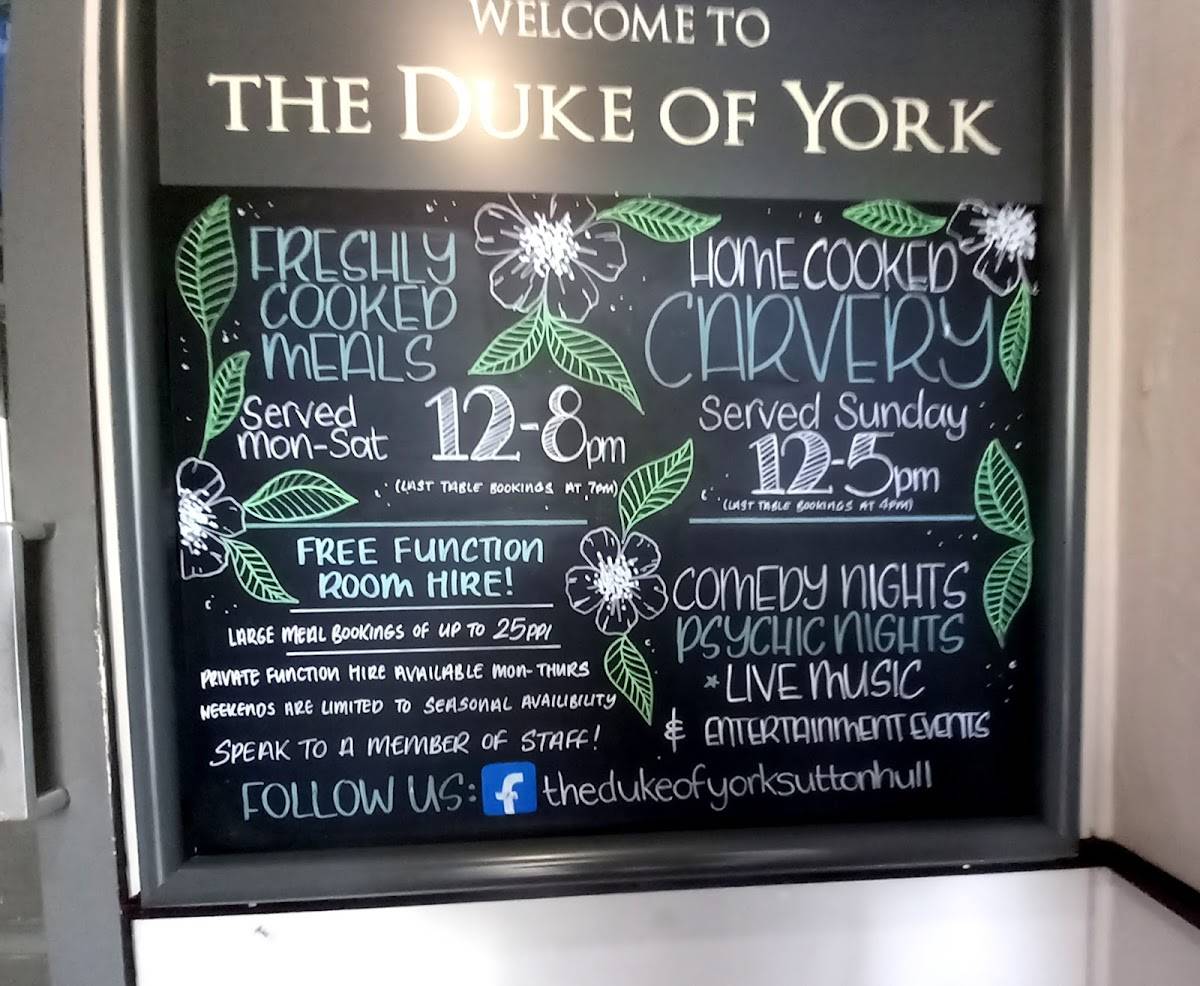 WELCOME TO
THE DUKE OF YORK
FRESHLY
COOKED
MEALS
Served
Mon-Sat
12-8pm
(LAST TABLE BOOKINGS AT 7PM)
HOME COOKED
CARVERY
Served Sunday
12-5pm
(LAST TABLE BOOKINGS AT 4PM)
FREE FUNCTION
ROOM HIRE!
LARGE MEAL BOOKINGS OF UP TO 25PPL
PRIVATE FUNCTION HIRE AVAILABLE MON-THURS
WEEKENDS ARE LIMITED TO SEASONAL AVAILIBILITY
SPEAK TO A MEMBER OF STAFF!
COMEDY NIGHTS
PSYCHIC NIGHTS
* LIVE MUSIC
& ENTERTAINMENT EVENTS
FOLLOW US: f thedukeofyorksuttonhull